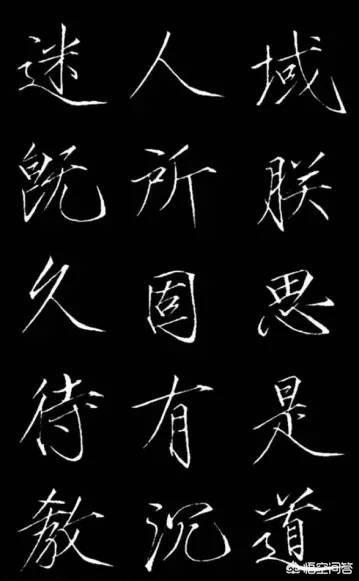 域朕思是道
人所固有沉
迷既久待教
悟空问答